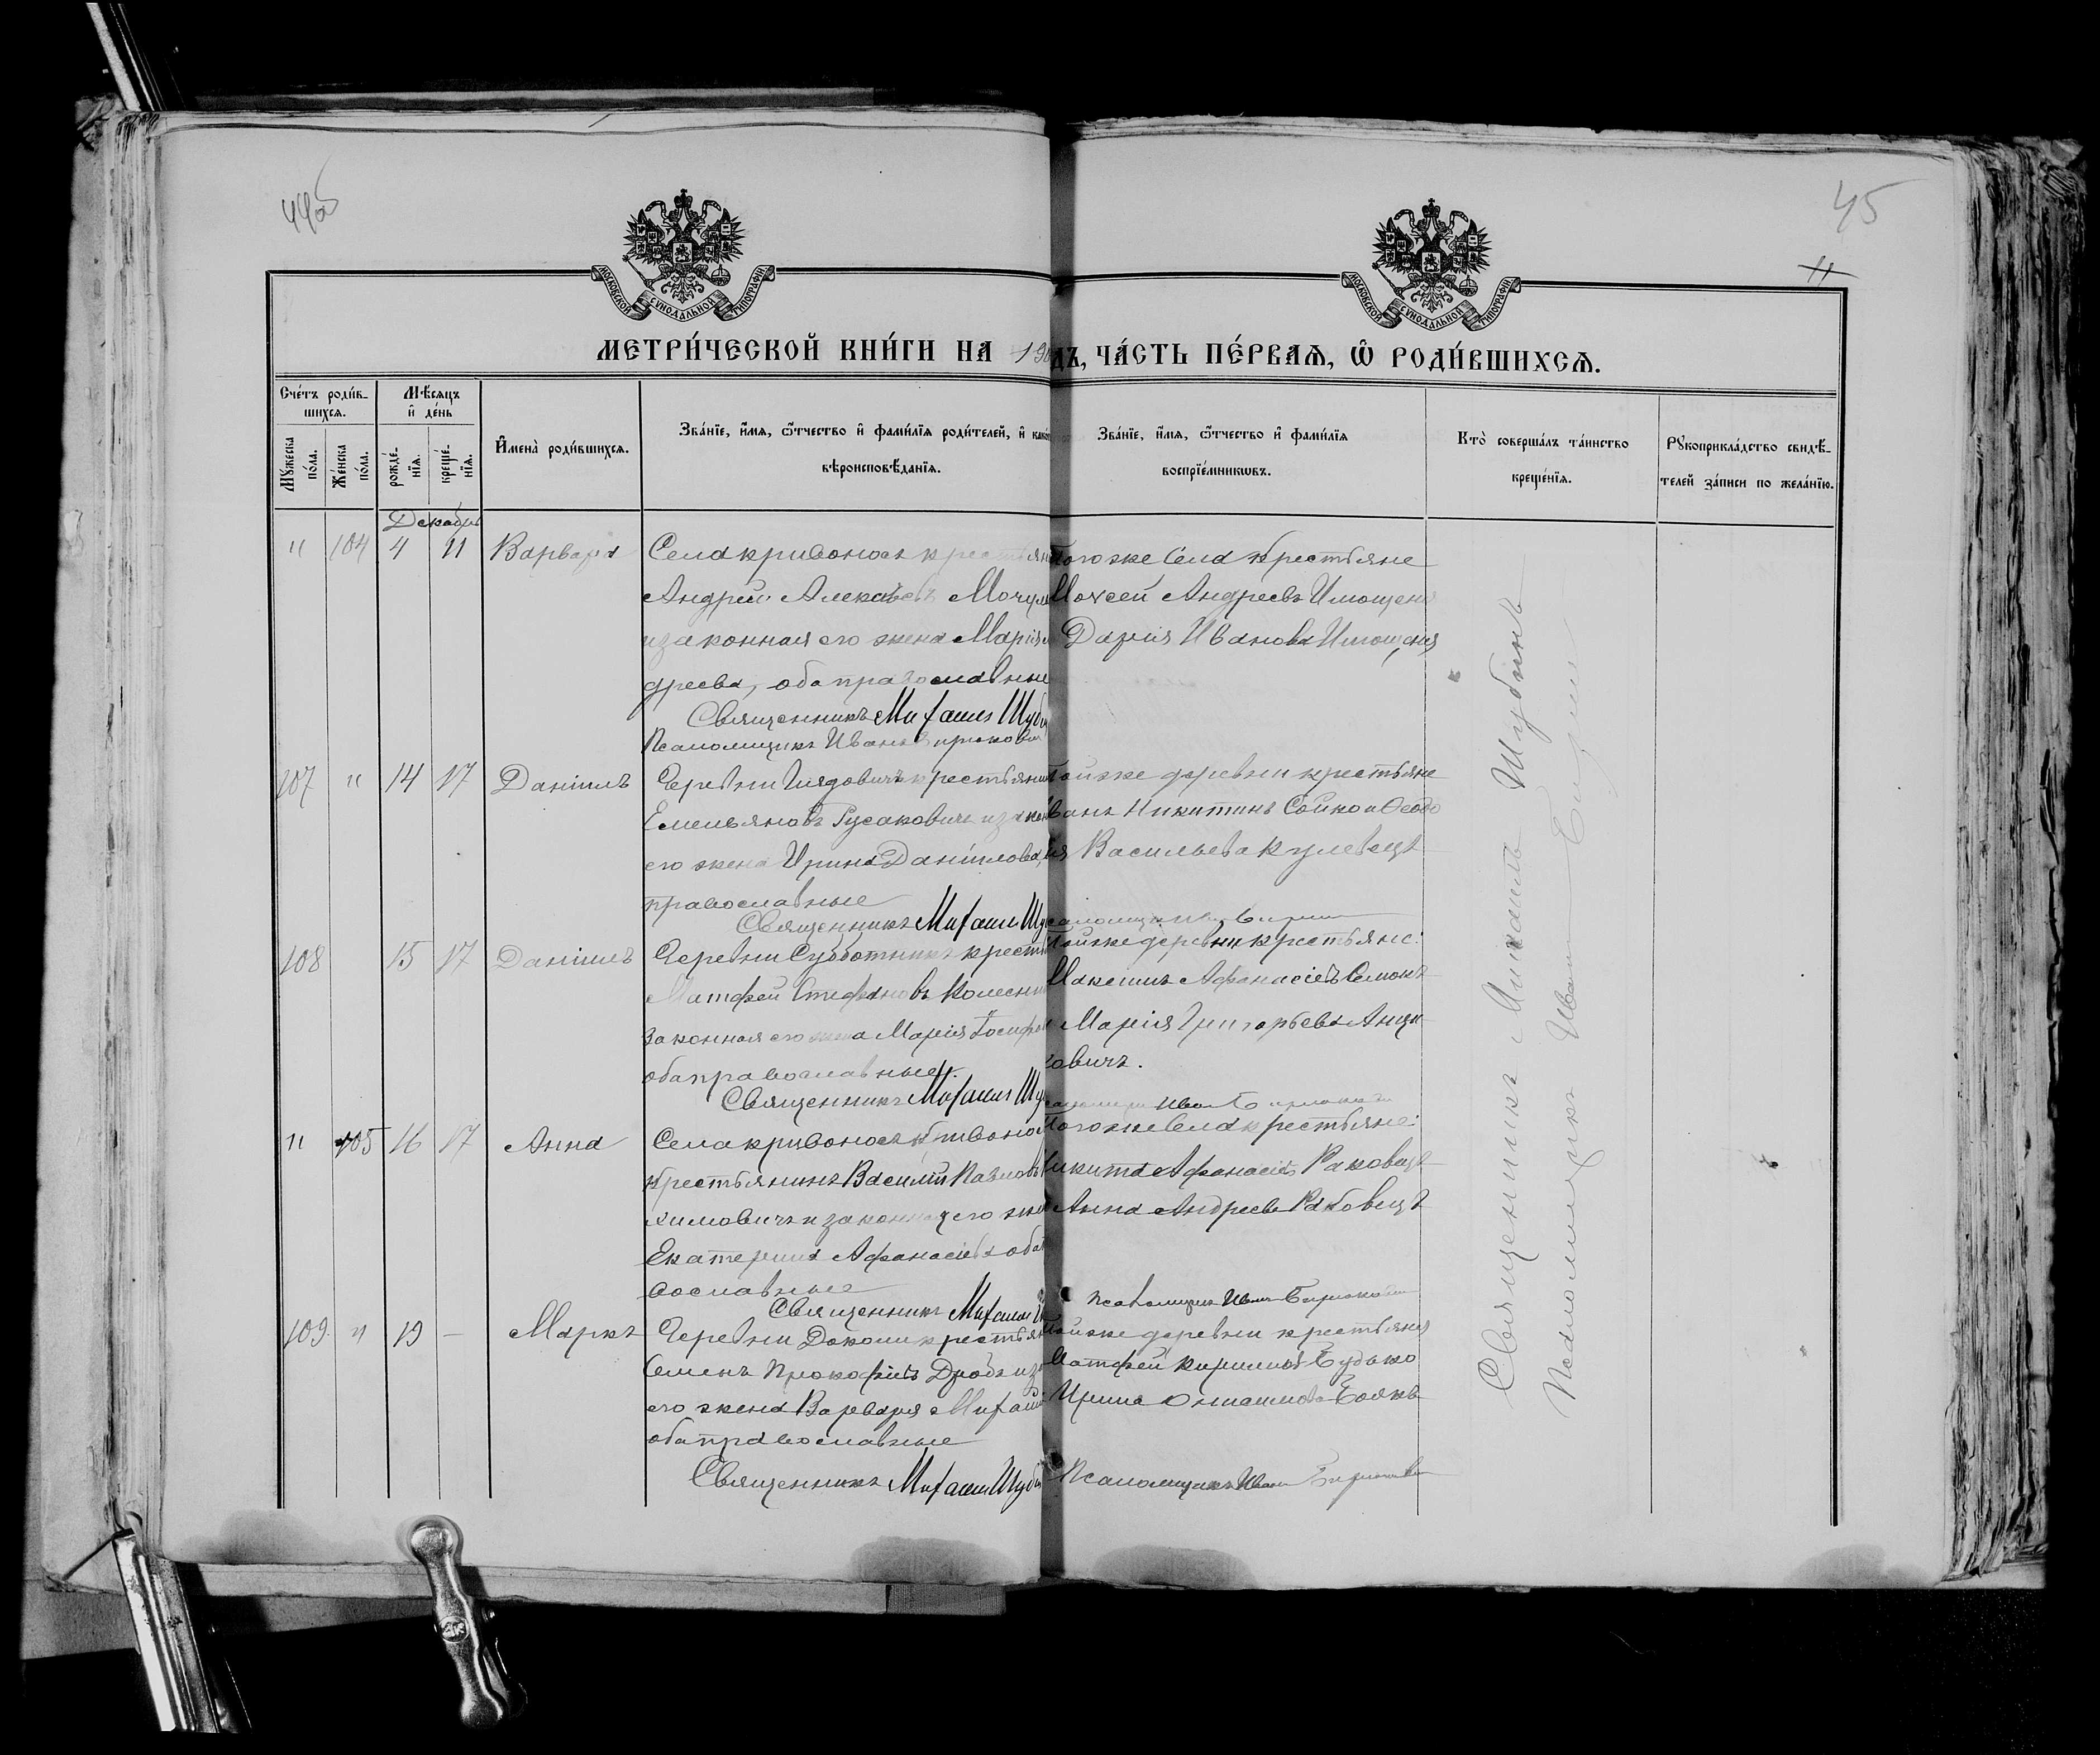 44об
45
11
МОСКОВСКОЙ СѴНОДАЛЬНОЙ ТИПОГРАФІИ
МОСКОВСКОЙ СѴНОДАЛЬНОЙ ТИПОГРАФІИ
МЕТРИ́ЧЕСКОЙ КНИ́ГИ НА 190 ДЪ, ЧА́СТЬ ПЕ́РВАЯ, Ѡ РОДИ́ВШИХСЯ.
Сче́тъ роди́в-
шихся.
Мꙋжеска по́ла.
Же́нска по́ла.
Мѣ́сяцъ
и҆ де́нь
рожде́-
нїя.
креще́-
нїя.
И҆мена̀ роди́вшихся.
Зва́нїе, и҆́мя, ѻ҆́тчество и҆ фами́лїя роди́телей, и҆ како
вѣроисповѣ́данїя.
Зва́нїе, и҆́мя, ѻ҆́тчество и҆ фами́лїя
воспрїе́мникѡвъ.
Кто̀ соверша́лъ та́инство
креще́нїя.
Рꙋкоприкла́дство свидѣ́-
телей за́писи по жела́нїю.
Декабрь
" 104 4 11 Варвара
Села Кривоносъ крестьян
Андрей Алексѣевъ
и законная его жена Марія
дреева, оба православные
Священникъ Михаилъ Шуби
Псаломщикъ Иванъ Бирюкови
того же села крестьяне
Моѵсей Андреевъ
Дарія Иванова
107 " 14 17 Даніилъ
Деревни крестьянин
Емельяновъ Гусаковичъ и закон
его жена Ирина Даніилова,
православные
Священникъ Михаилъ Шу
той же деревни крестьяне
ванъ Никитинъ Сойко и Ѳеодо
ія Васильева Кулевецъ
108 15 17 Даніилъ
Деревни Субботники крест
Матфей Стефановъ Колесни
законная его жена Марія Іосифо
оба православные.
Священникъ Михаилъ Шу
той же деревни крестьяне:
Максимъ Афанасіевъ
Марія Григорьева
овичъ.
" 105 16 17 Анна
Села Кривоноса
крестьянинъ Василій Павловъ
химовичъ и законная его жен
Екатерина Афанасіева оба
вославные
Священникъ Михаилъ
того же села крестьяне:
икита Афанасіевъ Раковецъ
Анна Андреева Раковецъ
Псаломщикъ Иванъ Бирюкови
109 " 19 — Маркъ
Деревни Доколи крестьян
Семенъ Прокофіевъ Дробъ и за
его жена Варвара Михаил
оба православные
Священникъ Михаилъ Шуби
той же деревни крестьяне
Матфей Кириловъ Будько
Ирина
Псаломщикъ Иванъ Бирюкови
Священникъ Михаилъ Шубинъ
Псаломщикъ Иванъ